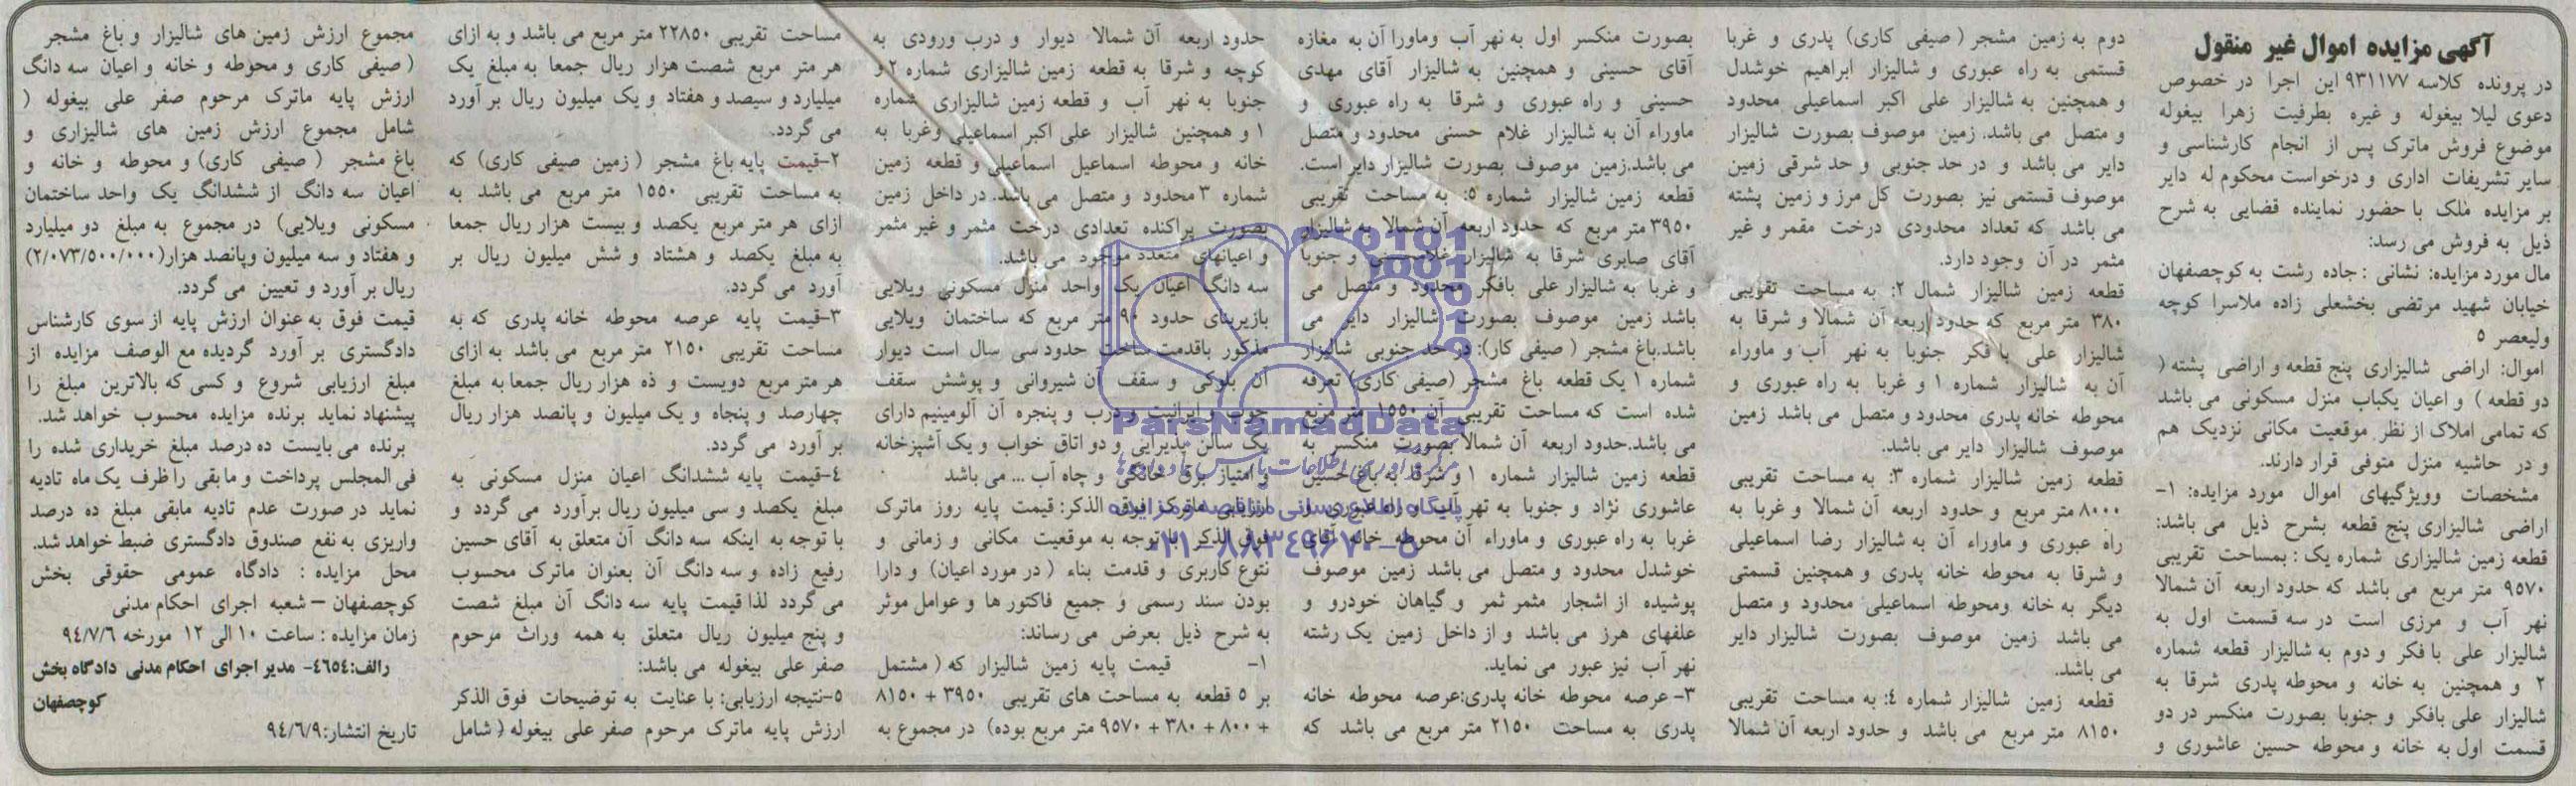 آگهی مزایده اموال غیر منقول
در پرونده کلاسه ۹۳۱۱۷۷ این اجرا در خصوص
دعوی لیلا بیغوله و غیره بطرفیت زهرا بیغوله
موضوع فروش ماترک پس از انجام کارشناسی و
سایر تشریفات اداری و درخواست محکوم له دایر
بر مزایده ملک با حضور نماینده قضایی به شرح
ذیل به فروش می رسد:
مال مورد مزایده: نشانی : جاده رشت به کوچصفهان
خیابان شهید مرتضی بخشعلی زاده ملاسرا کوچه
ولیعصر ۵
اموال: اراضی شالیزاری پنج قطعه و اراضی پشته (
دو قطعه ) و اعیان یکباب منزل مسکونی می باشد
که تمامی املاک از نظر موقعیت مکانی نزدیک هم
و در حاشیه منزل متوفی قرار دارند.
مشخصات وویژگیهای اموال مورد مزایده: ۱-
اراضی شالیزاری پنج قطعه بشرح ذیل می باشد:
قطعه زمین شالیزاری شماره یک : بمساحت تقریبی
۹۵۷۰ متر مربع می باشد که حدود اربعه آن شمالا
نهر آب و مرزی است در سه قسمت اول به
شالیزار علی با فکر و دوم به شالیزار قطعه شماره
۲ و همچنین به خانه و محوطه پدری شرقا به
شالیزار علی بافکر و جنوبا بصورت منکسر در دو
قسمت اول به خانه و محوطه حسین عاشوری و
دوم به زمین مشجر ( صیفی کاری) پدری و غربا
قستمی به راه عبوری و شالیزار ابراهیم خوشدل
و همچنین به شالیزار علی اکبر اسماعیلی محدود
و متصل می باشد. زمین موصوف بصورت شالیزار
دایر می باشد و در حد جنوبی و حد شرقی زمین
موصوف قستمی نیز بصورت کل مرز و زمین پشته
می باشد که تعداد محدودی درخت مقمر و غیر
مثمر در آن وجود دارد.
قطعه زمین شالیزار شمال ۲: به مساحت تقریبی
۳۸۰ متر مربع که حدود اربعه آن شمالا و شرقا به
شالیزار علی با فکر جنوبا به نهر آب و ماوراء
آن به شالیزار شماره ۱ و غربا به راه عبوری و
محوطه خانه پدری محدود و متصل می باشد زمین
موصوف شالیزار دایر می باشد.
قطعه زمین شالیزار شماره ۳: به مساحت تقریبی
۸۰۰۰ متر مربع و حدود اربعه آن شمالا و غربا به
راه عبوری و ماوراء آن به شالیزار رضا اسماعیلی
و شرقا به محوطه خانه پدری و همچنین قسمتی
دیگر به خانه ومحوطه اسماعیلی محدود و متصل
می باشد زمین موصوف بصورت شالیزار دایر
می باشد.
قطعه زمین شالیزار شماره ٤: به مساحت تقریبی
۸۱۵۰ متر مربع می باشد و حدود اربعه آن شمالا
بصورت منکسر اول به نهر آب وماورا آن به مغازه
آقای حسینی و همچنین به شالیزار آقای مهدی
حسینی و راه عبوری و شرقا به راه عبوری و
ماوراء آن به شالیزار غلام حسنی محدود و متصل
می باشد.زمین موصوف بصورت شالیزار دایر است.
قطعه زمین شالیزار شماره ۵: به مساحت تقریبی
۳۹۵۰ متر مربع که حدود اربعه آن شمالا به شالیزار
آقای صابری شرقا به شالیزار غلام حسنی و جنوبا
و غربا به شالیزار علی بافکر محدود و متصل می
باشد زمین موصوف بصورت شالیزار دایر می
باشد.باغ مشجر ( صیفی کار): در حد جنوبی شالیزار
شماره ۱ یک قطعه باغ مشجر (صیفی کاری) تعرفه
شده است که مساحت تقریبی آن ۱۵۵۰ متر مربع
می باشد.حدود اربعه آن شمالا بصورت منکسر به
قطعه زمین شالیزار شماره ۱ و شرقا به باغ حسین
عاشوری نژاد و جنوبا به نهر آب و راه عبوری و
غربا به راه عبوری و ماوراء آن محوطه خانه آقای
خوشدل محدود و متصل می باشد زمین موصوف
پوشیده از اشجار مثمر ثمر و گیاهان خودرو و
علفهای هرز می باشد و از داخل زمین یک رشته
نهر آب نیز عبور می نماید.
۳- عرصه محوطه خانه پدری:عرصه محوطه خانه
پدری به مساحت ۲۱۵۰ متر مربع می باشد که
حدود اربعه آن شمالا دیوار و درب ورودی به
کوچه و شرقا به قطعه زمین شالیزاری شماره ۲ و
جنوبا به نهر آب و قطعه زمین شالیزاری شماره
۱ و همچنین شالیزار علی اکبر اسماعیلی وغربا به
خانه و محوطه اسماعیل اسماعیلی و قطعه زمین
شماره ۳ محدود و متصل می باشد. در داخل زمین
بصورت پراکنده تعدادی درخت مثمر و غیر مثمر
و اعیانهای متعدد موجود می باشد.
سه دانگ اعیان یک واحد منزل مسکونی ویلایی
بازیربنای حدود ۹۰ متر مربع که ساختمان ویلایی
مذکور باقدمت ساخت حدود سی سال است دیوار
آن بلوکی و سقف آن شیروانی و پوشش سقف
چوب و ایرانیت و درب و پنجره آن آلومینیم دارای
یک سالن پذیرایی و دو اتاق خواب و یک آشپزخانه
و امتیاز برق خانگی و چاه آب ... می باشد
ارزیابی ماترک فوق الذکر: قیمت پایه روز ماترک
فوق الذکر با توجه به موقعیت مکانی و زمانی و
نتوع کاربری و قدمت بناء ( در مورد اعیان) و دارا
بودن سند رسمی و جمیع فاکتور ها و عوامل موثر
به شرح ذیل بعرض می رساند:
۱- قیمت پایه زمین شالیزار که ( مشتمل
بر ۵ قطعه به مساحت های تقریبی ۳۹۵۰ + ۸۱۵۰
+ ۸۰۰ + ۳۸۰ + ۹۵۷۰ متر مربع بوده) در مجموع به
مساحت تقریبی ۲۲۸۵۰ متر مربع می باشد و به ازای
هر متر مربع شصت هزار ریال جمعا به مبلغ یک
میلیارد و سیصد و هفتاد و یک میلیون ریال بر آورد
می گردد.
۲-قیمت پایه باغ مشجر ( زمین صیفی کاری) که
به مساحت تقریبی ۱۵۵۰ متر مربع می باشد به
ازای هر متر مربع یکصد و بیست هزار ریال جمعا
به مبلغ یکصد و هشتاد و شش میلیون ریال بر
آورد می گردد.
۳-قیمت پایه عرصه محوطه خانه پدری که به
مساحت تقریبی ۲۱۵۰ متر مربع می باشد به ازای
هر متر مربع دویست و ذه هزار ریال جمعا به مبلغ
چهارصد و پنجاه و یک میلیون و پانصد هزار ریال
بر آورد می گردد.
٤-قیمت پایه ششدانگ اعیان منزل مسکونی به
مبلغ یکصد و سی میلیون ریال برآورد می گردد و
با توجه به اینکه سه دانگ آن متعلق به آقای حسین
رفیع زاده و سه دانگ آن بعنوان ماترک محسوب
می گردد لذا قیمت پایه سه دانگ آن مبلغ شصت
و پنج میلیون ریال متعلق به همه وراث مرحوم
صفر علی بیغوله می باشد:
۵-نتیجه ارزیابی: با عنایت به توضیحات فوق الذکر
ارزش پایه ماترک مرحوم صفر علی بیغوله ( شامل
مجموع ارزش زمین های شالیزار و باغ مشجر
( صیفی کاری و محوطه و خانه و اعیان سه دانگ
ارزش پایه ماترک مرحوم صفر علی بیغوله (
شامل مجموع ارزش زمین های شالیزاری و
باغ مشجر ( صیفی کاری) و محوطه و خانه و
اعیان سه دانگ از ششدانگ یک واحد ساختمان
مسکونی ویلایی) در مجموع به مبلغ دو میلیارد
و هفتاد و سه میلیون وپانصد هزار(۲/۰۷۳/۵۰۰/۰۰۰)
ریال بر آورد و تعیین می گردد.
قیمت فوق به عنوان ارزش پایه از سوی کارشناس
دادگستری بر آورد گردیده مع الوصف مزایده از
مبلغ ارزیابی شروع و کسی که بالاترین مبلغ را
پیشنهاد نماید برنده مزایده محسوب خواهد شد.
برنده می بایست ده درصد مبلغ خریداری شده را
فی المجلس پرداخت و مابقی را ظرف یک ماه تادیه
نماید در صورت عدم تادیه مابقی مبلغ ده درصد
واریزی به نفع صندوق دادگستری ضبط خواهد شد.
محل مزایده : دادگاه عمومی حقوقی بخش
کوچصفهان – شعبه اجرای احکام مدنی
زمان مزایده : ساعت ۱۰ الی ۱۲ مورخه ۹٤/۷/۶
رالف:٤۶۵٤- مدیر اجرای احکام مدنی دادگاه بخش
کوچصفهان
تاریخ انتشار:۹٤/۶/۹
ParsNamadData
مرکز فرآوری اطلاعات پارس نماد داده ها
پایگاه اطلاع رسانی مناقصه و مزایده
۰۲۱-۸۸۳٤۹۶۷۰-۵